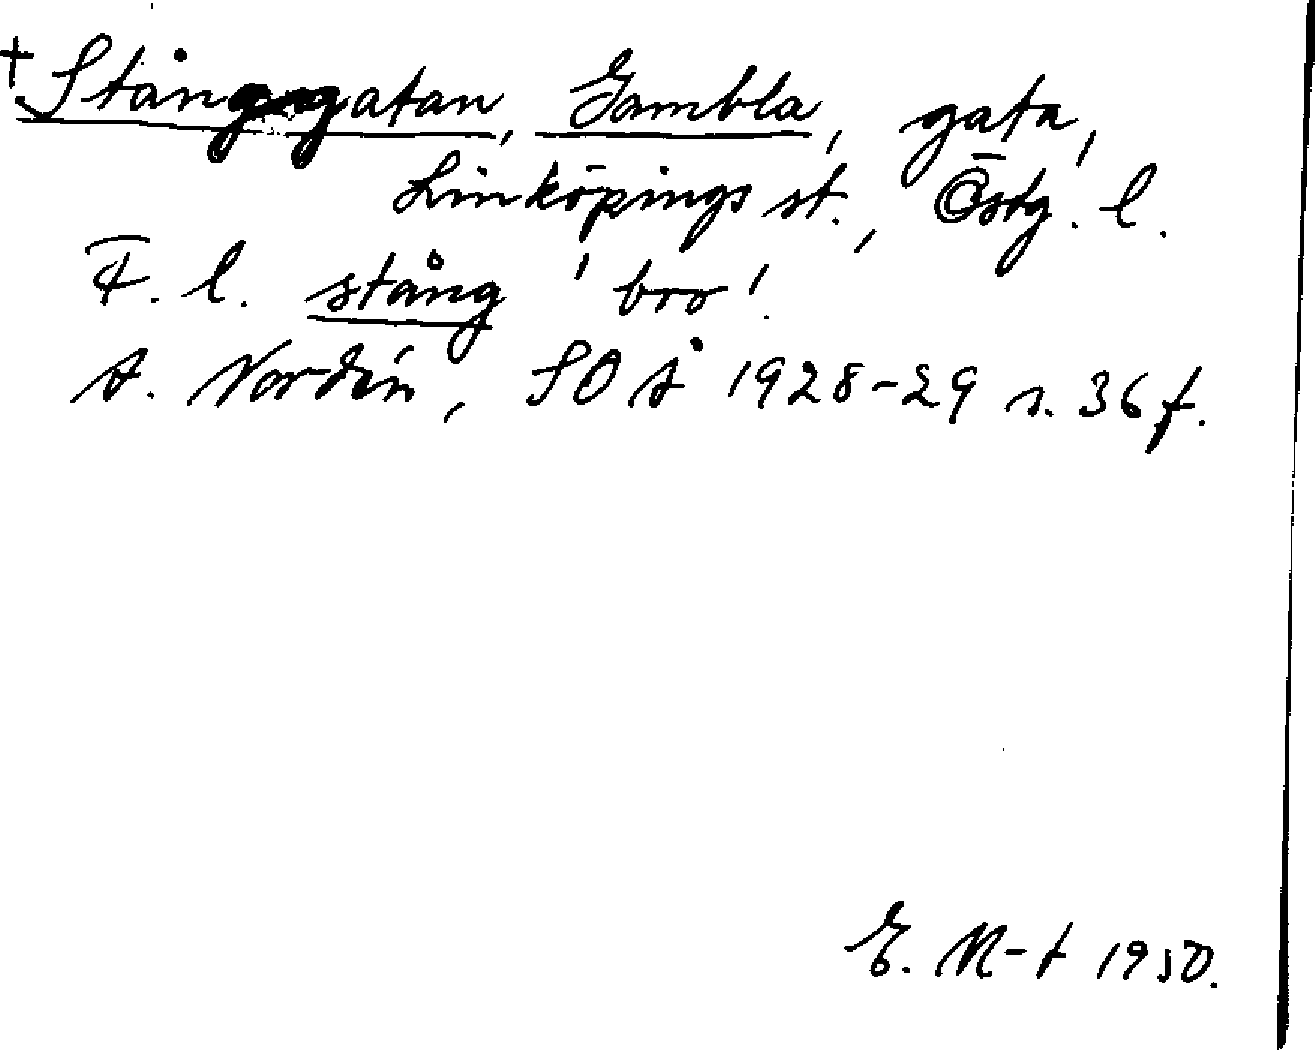 †Stånggatan, Gambla, gata,
Linköpings st., Östg. l.
F. l. stång 'bro'.
A. Nordén, SOÅ 1928-29 s. 36 f.
E. N-t 1950.